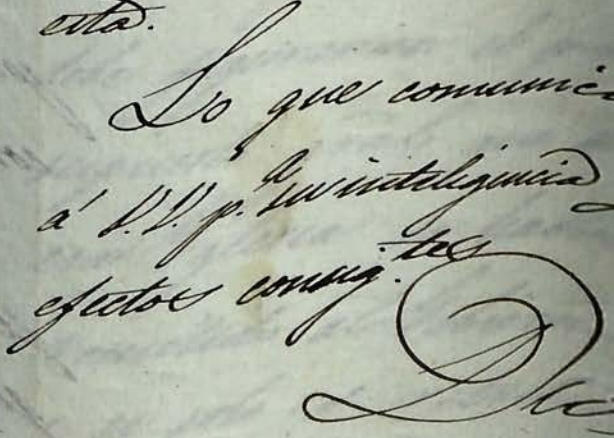 esta.
Lo que comunic
á V.V. p.a su inteligencia
efectos consig.tes